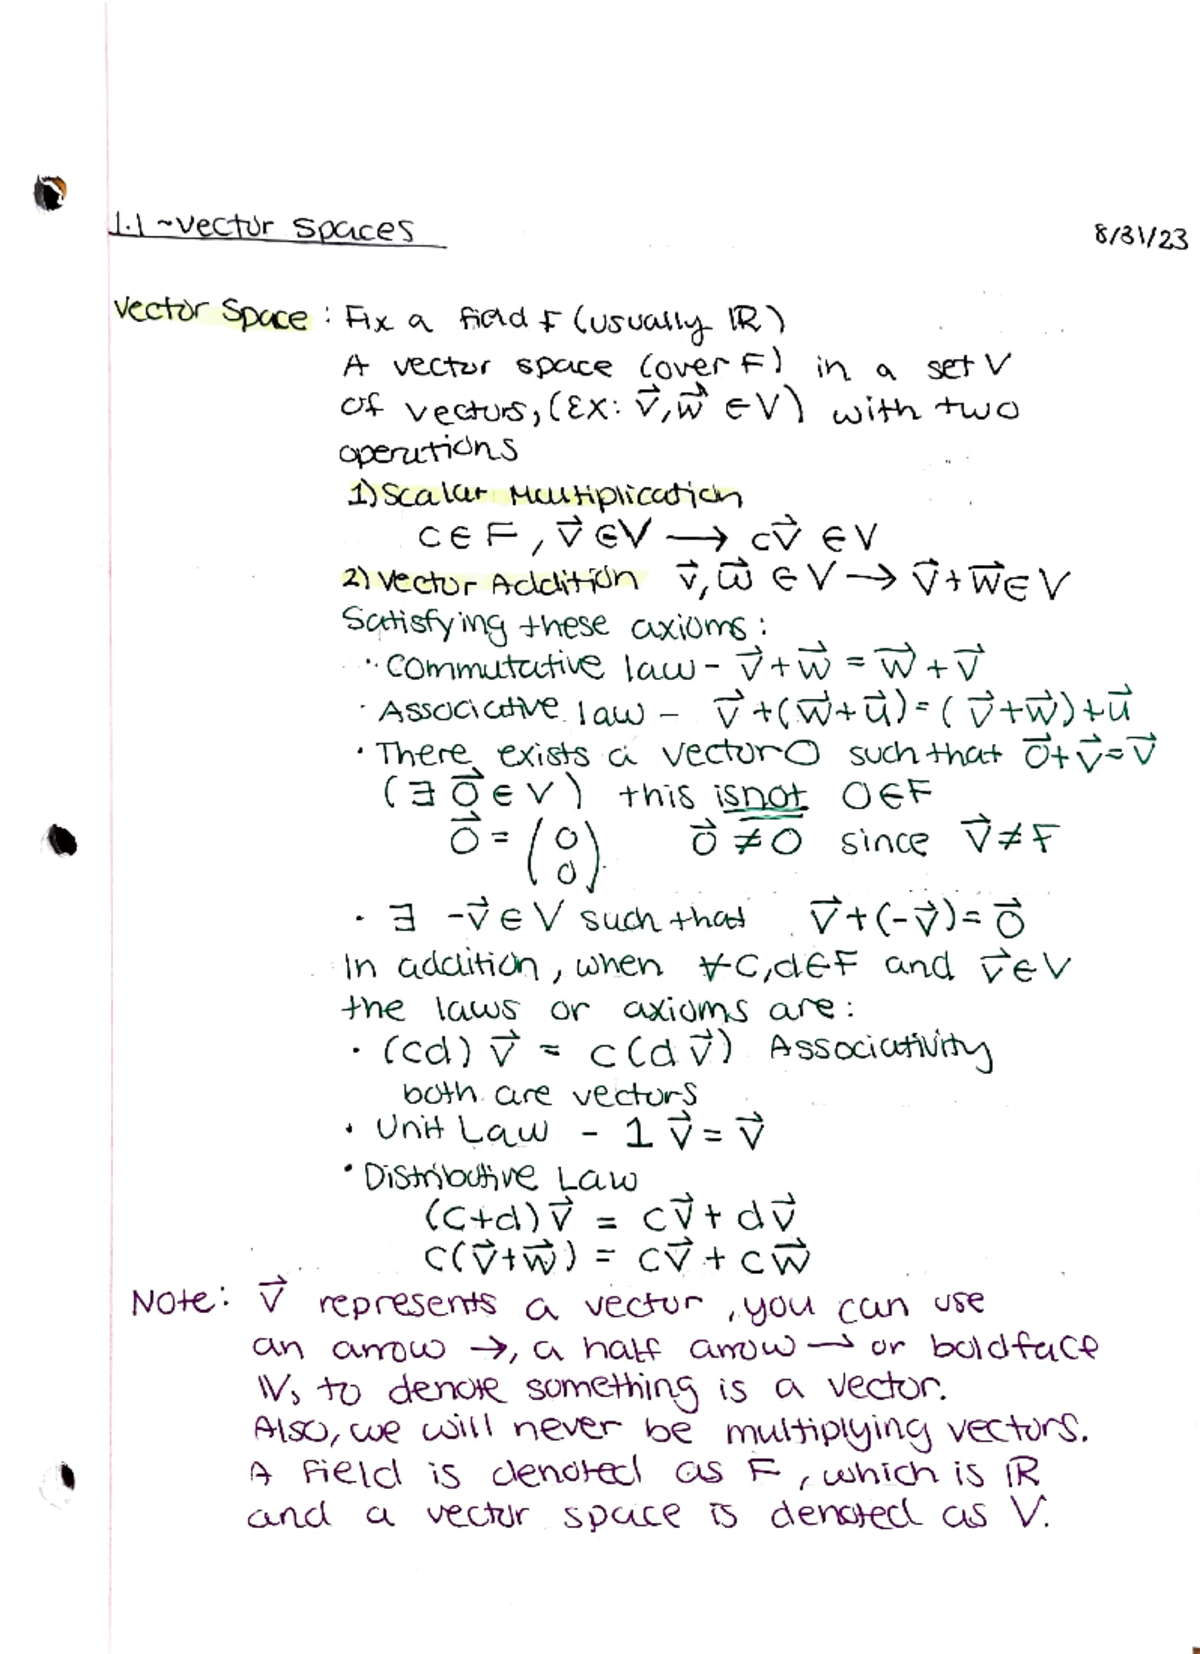 1.1 ~ Vector Spaces 8/31/23
Vector Space: Fix a field F (usually ℝ)
A vector space (over F) in a set V
of vectors, (Ex: v⃗, w⃗ ∈ V) with two
operations
1) Scalar Multiplication
c ∈ F, v⃗ ∈ V → cv⃗ ∈ V
2) Vector Addition v⃗, w⃗ ∈ V → v⃗ + w⃗ ∈ V
Satisfying these axioms:
· Commutative law - v⃗ + w⃗ = w⃗ + v⃗
· Associative law - v⃗ + (w⃗ + u⃗) = (v⃗ + w⃗) + u⃗
· There exists a vector 0 such that 0⃗ + v⃗ = v⃗
(∃ 0⃗ ∈ V) this is not 0 ∈ F
0⃗ = (0 0) 0⃗ ≠ 0 since v⃗ ≠ F
· ∃ -v⃗ ∈ V such that v⃗ + (-v⃗) = 0⃗
In addition, when ∀ c, d ∈ F and v⃗ ∈ V
the laws or axioms are:
· (cd) v⃗ = c(d v⃗) Associativity
both are vectors
· Unit Law - 1 v⃗ = v⃗
· Distributive Law
(c+d) v⃗ = cv⃗ + dv⃗
c(v⃗ + w⃗) = cv⃗ + cw⃗
Note: v⃗ represents a vector, you can use
an arrow →, a half arrow ⇀ or boldface
𝕍, to denote something is a vector.
Also, we will never be multiplying vectors.
A field is denoted as F, which is ℝ
and a vector space is denoted as V.